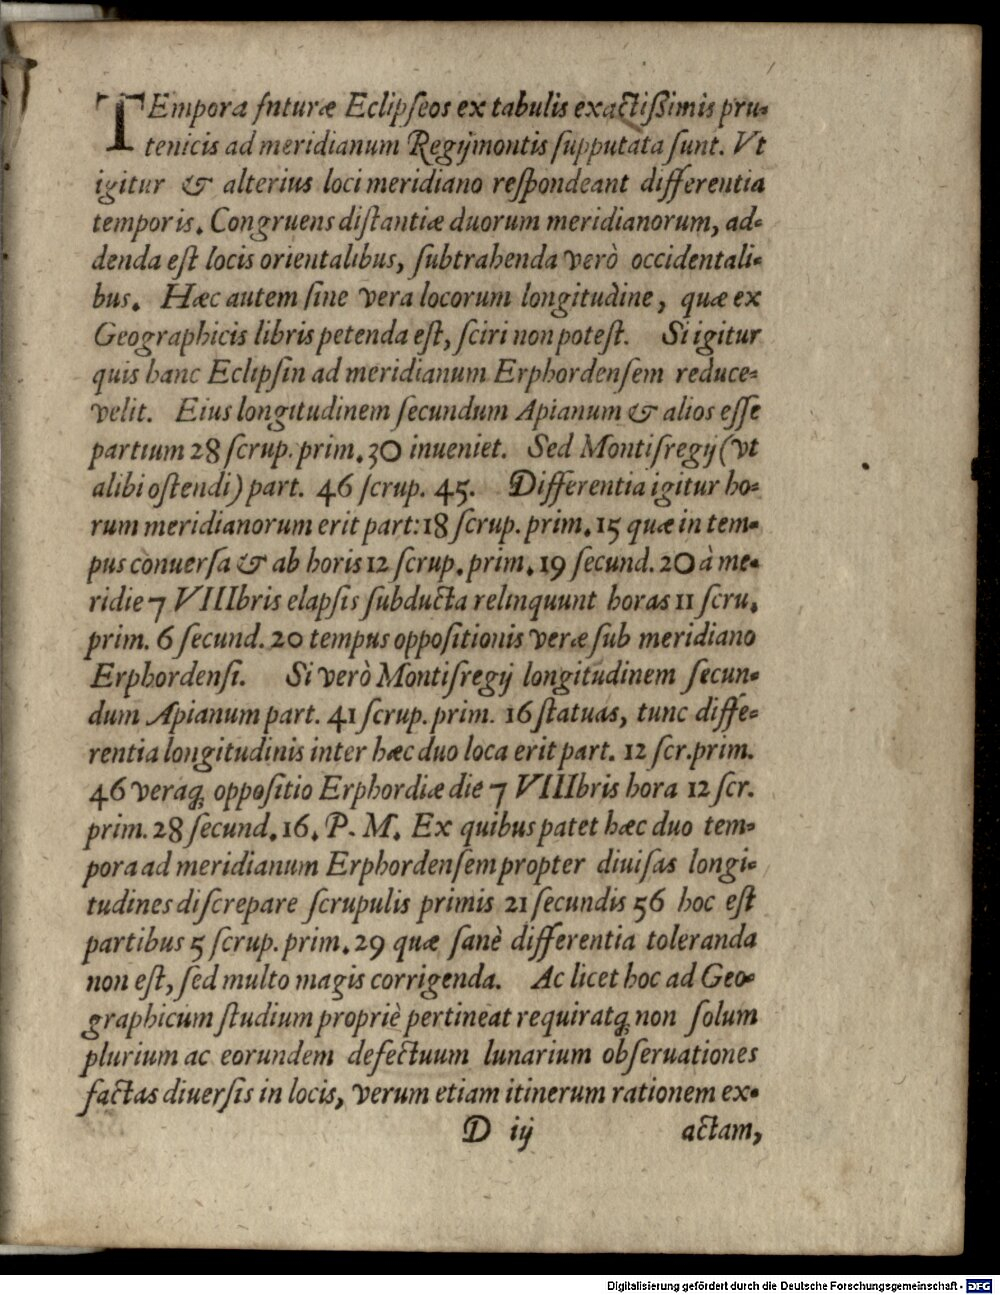 TEmpora fnturæ Eclipſeos ex tabulis exactiſsimis pru-
tenicis ad meridianum Regijmontis ſupputata ſunt. Vt
igitur & alterius loci meridiano reſpondeant differentia
temporis. Congruens diſtantiæ duorum meridianorum, ad-
denda eſt locis orientalibus, ſubtrahenda verò occidentali-
bus. Hæc autem ſine vera locorum longitudine, quæ ex
Geographicis libris petenda eſt, ſciri non poteſt. Si igitur
quis hanc Eclipſin ad meridianum Erphordenſem reduce-
velit. Eius longitudinem ſecundum Apianum & alios eſſe
partium 28 ſcrup. prim. 30 inueniet. Sed Montiſregij (vt
alibi oſtendi) part. 46 ſcrup. 45. Differentia igitur ho-
rum meridianorum erit part: 18 ſcrup. prim. 15 quæ in tem-
pus conuerſa & ab horis 12 ſcrup. prim. 19 ſecund. 20 à me-
ridie 7 VIIIbris elapſis ſubducta relinquunt horas 11 ſcru.
prim. 6 ſecund. 20 tempus oppoſitionis veræ ſub meridiano
Erphordenſi. Si verò Montiſregij longitudinem ſecun-
dum Apianum part. 41 ſcrup. prim. 16 ſtatuas, tunc diffe-
rentia longitudinis inter hæc duo loca erit part. 12 ſcr. prim.
46 veraq; oppoſitio Erphordiæ die 7 VIIIbris hora 12 ſcr.
prim. 28 ſecund. 16. P. M. Ex quibus patet hæc duo tem-
pora ad meridianum Erphordenſem propter diuiſas longi-
tudines diſcrepare ſcrupulis primis 21 ſecundis 56 hoc eſt
partibus 5 ſcrup. prim. 29 quæ ſanè differentia toleranda
non eſt, ſed multo magis corrigenda. Ac licet hoc ad Geo-
graphicum ſtudium propriè pertineat requiratq; non ſolum
plurium ac eorundem defectuum lunarium obſeruationes
factas diuerſis in locis, verum etiam itinerum rationem ex-
D iij actam,
Digitalisierung gefördert durch die Deutsche Forschungsgemeinschaft - DFG